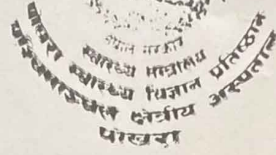 नेपाल सरकार
स्वास्थ्य मन्त्रालय
पोखरा स्वास्थ्य विज्ञान प्रतिष्ठान
पश्चिमाञ्चल क्षेत्रीय अस्पताल
पोखरा